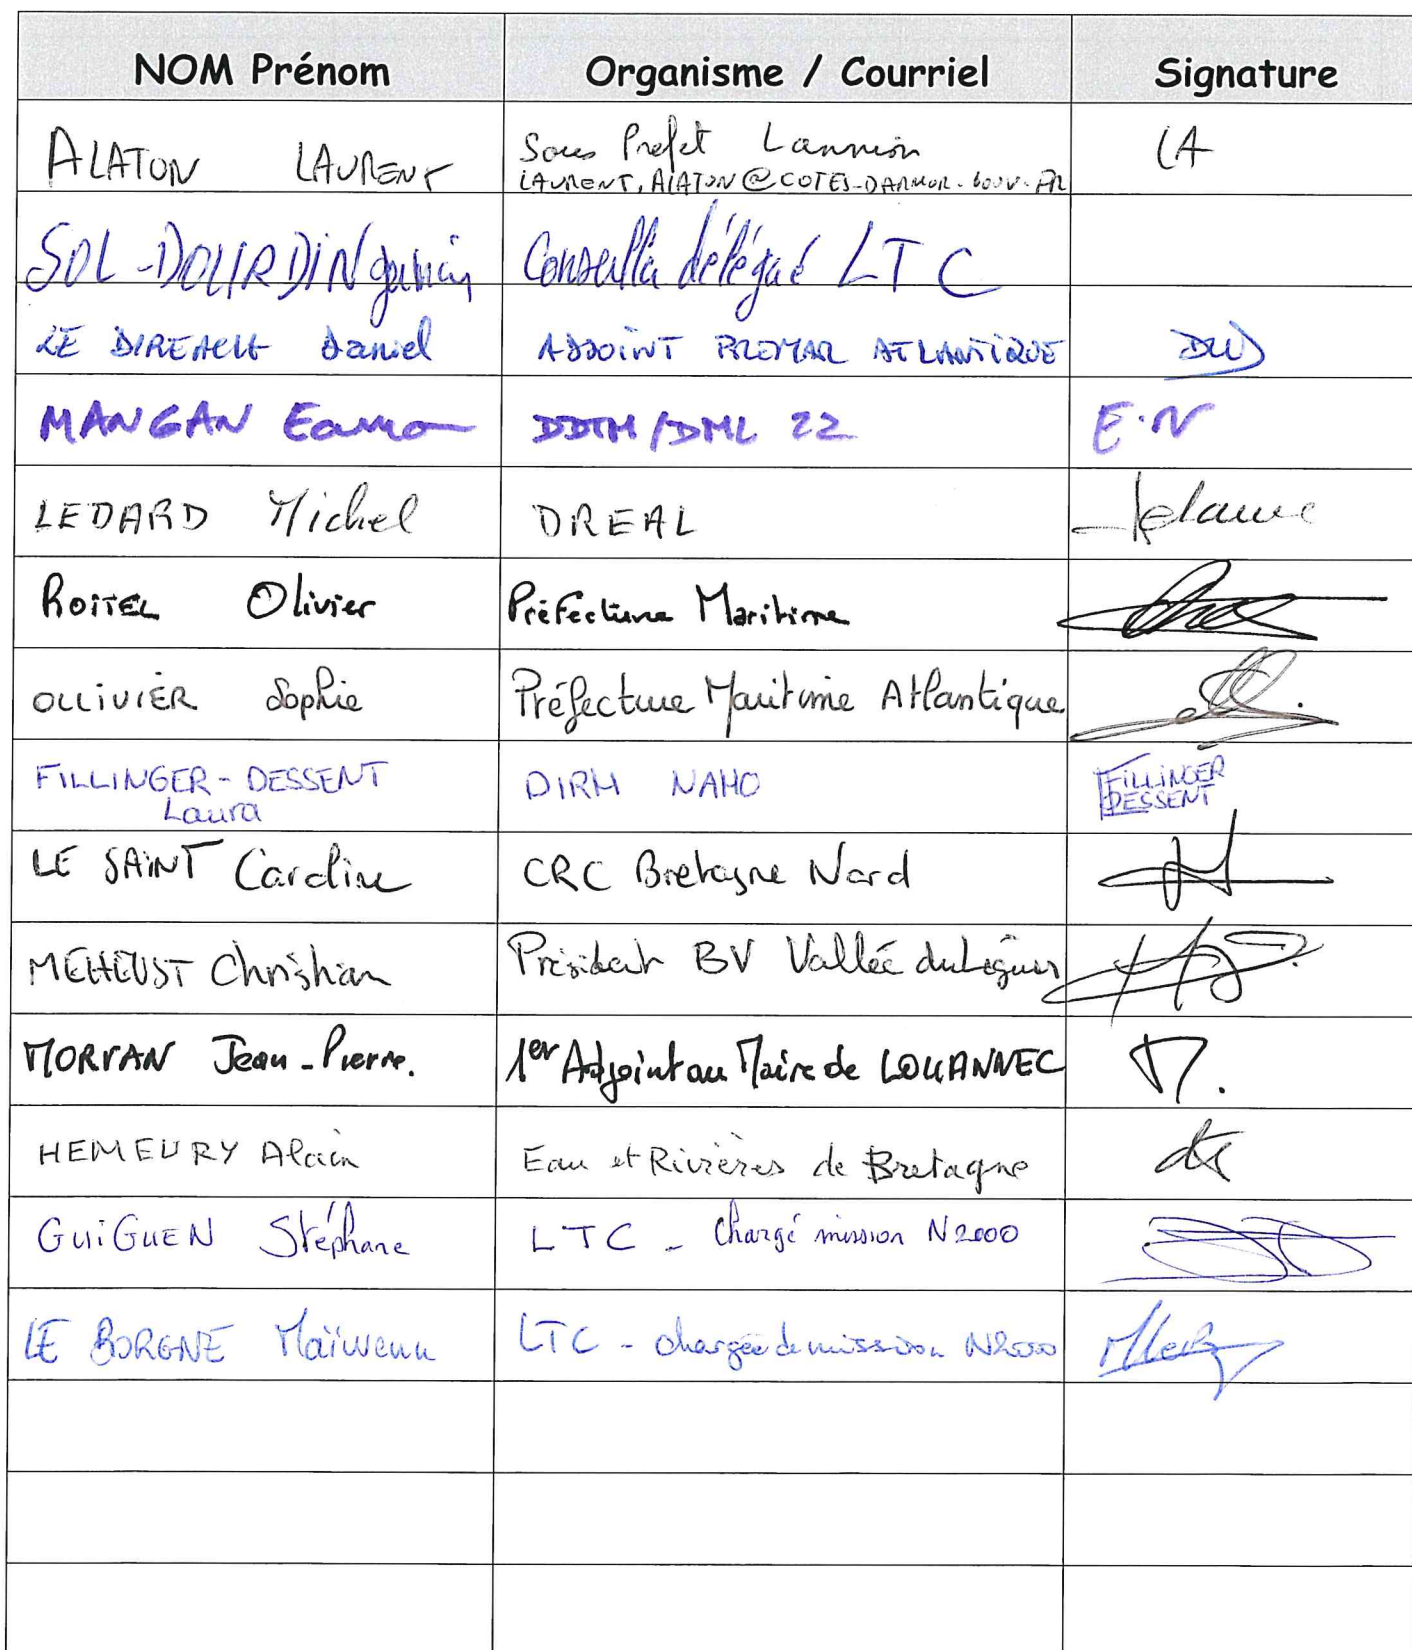 NOM Prénom Organisme / Courriel Signature
ALATON LAURENT Sous Prefet Lannion LA
LAURENT.ALATON@COTES-DARMOR.GOUV.FR
SOL-DOURDIN Conseiller délégué LTC
LE DIREACH Daniel ADJOINT PREMAR ATLANTIQUE
MANGAN Eamon DDTM/DML 22 E.N
LEDARD Michel DREAL
ROITEL Olivier Préfecture Maritime
OLLIVIER Sophie Préfecture Maritime Atlantique
FILLINGER-DESSENT DIRM NAMO FILLINGER
Laura DESSENT
LE SAINT Caroline CRC Bretagne Nord
MEHEUST Christian Président BV Vallée du Léguer
MORVAN Jean-Pierre. 1er Adjoint au Maire de LOUANNEC M.
HEMEURY Alain Eau et Rivières de Bretagne
GUIGUEN Stéphane LTC - Chargé mission N2000
LE BORGNE Maïwenn LTC - chargée de mission N2000